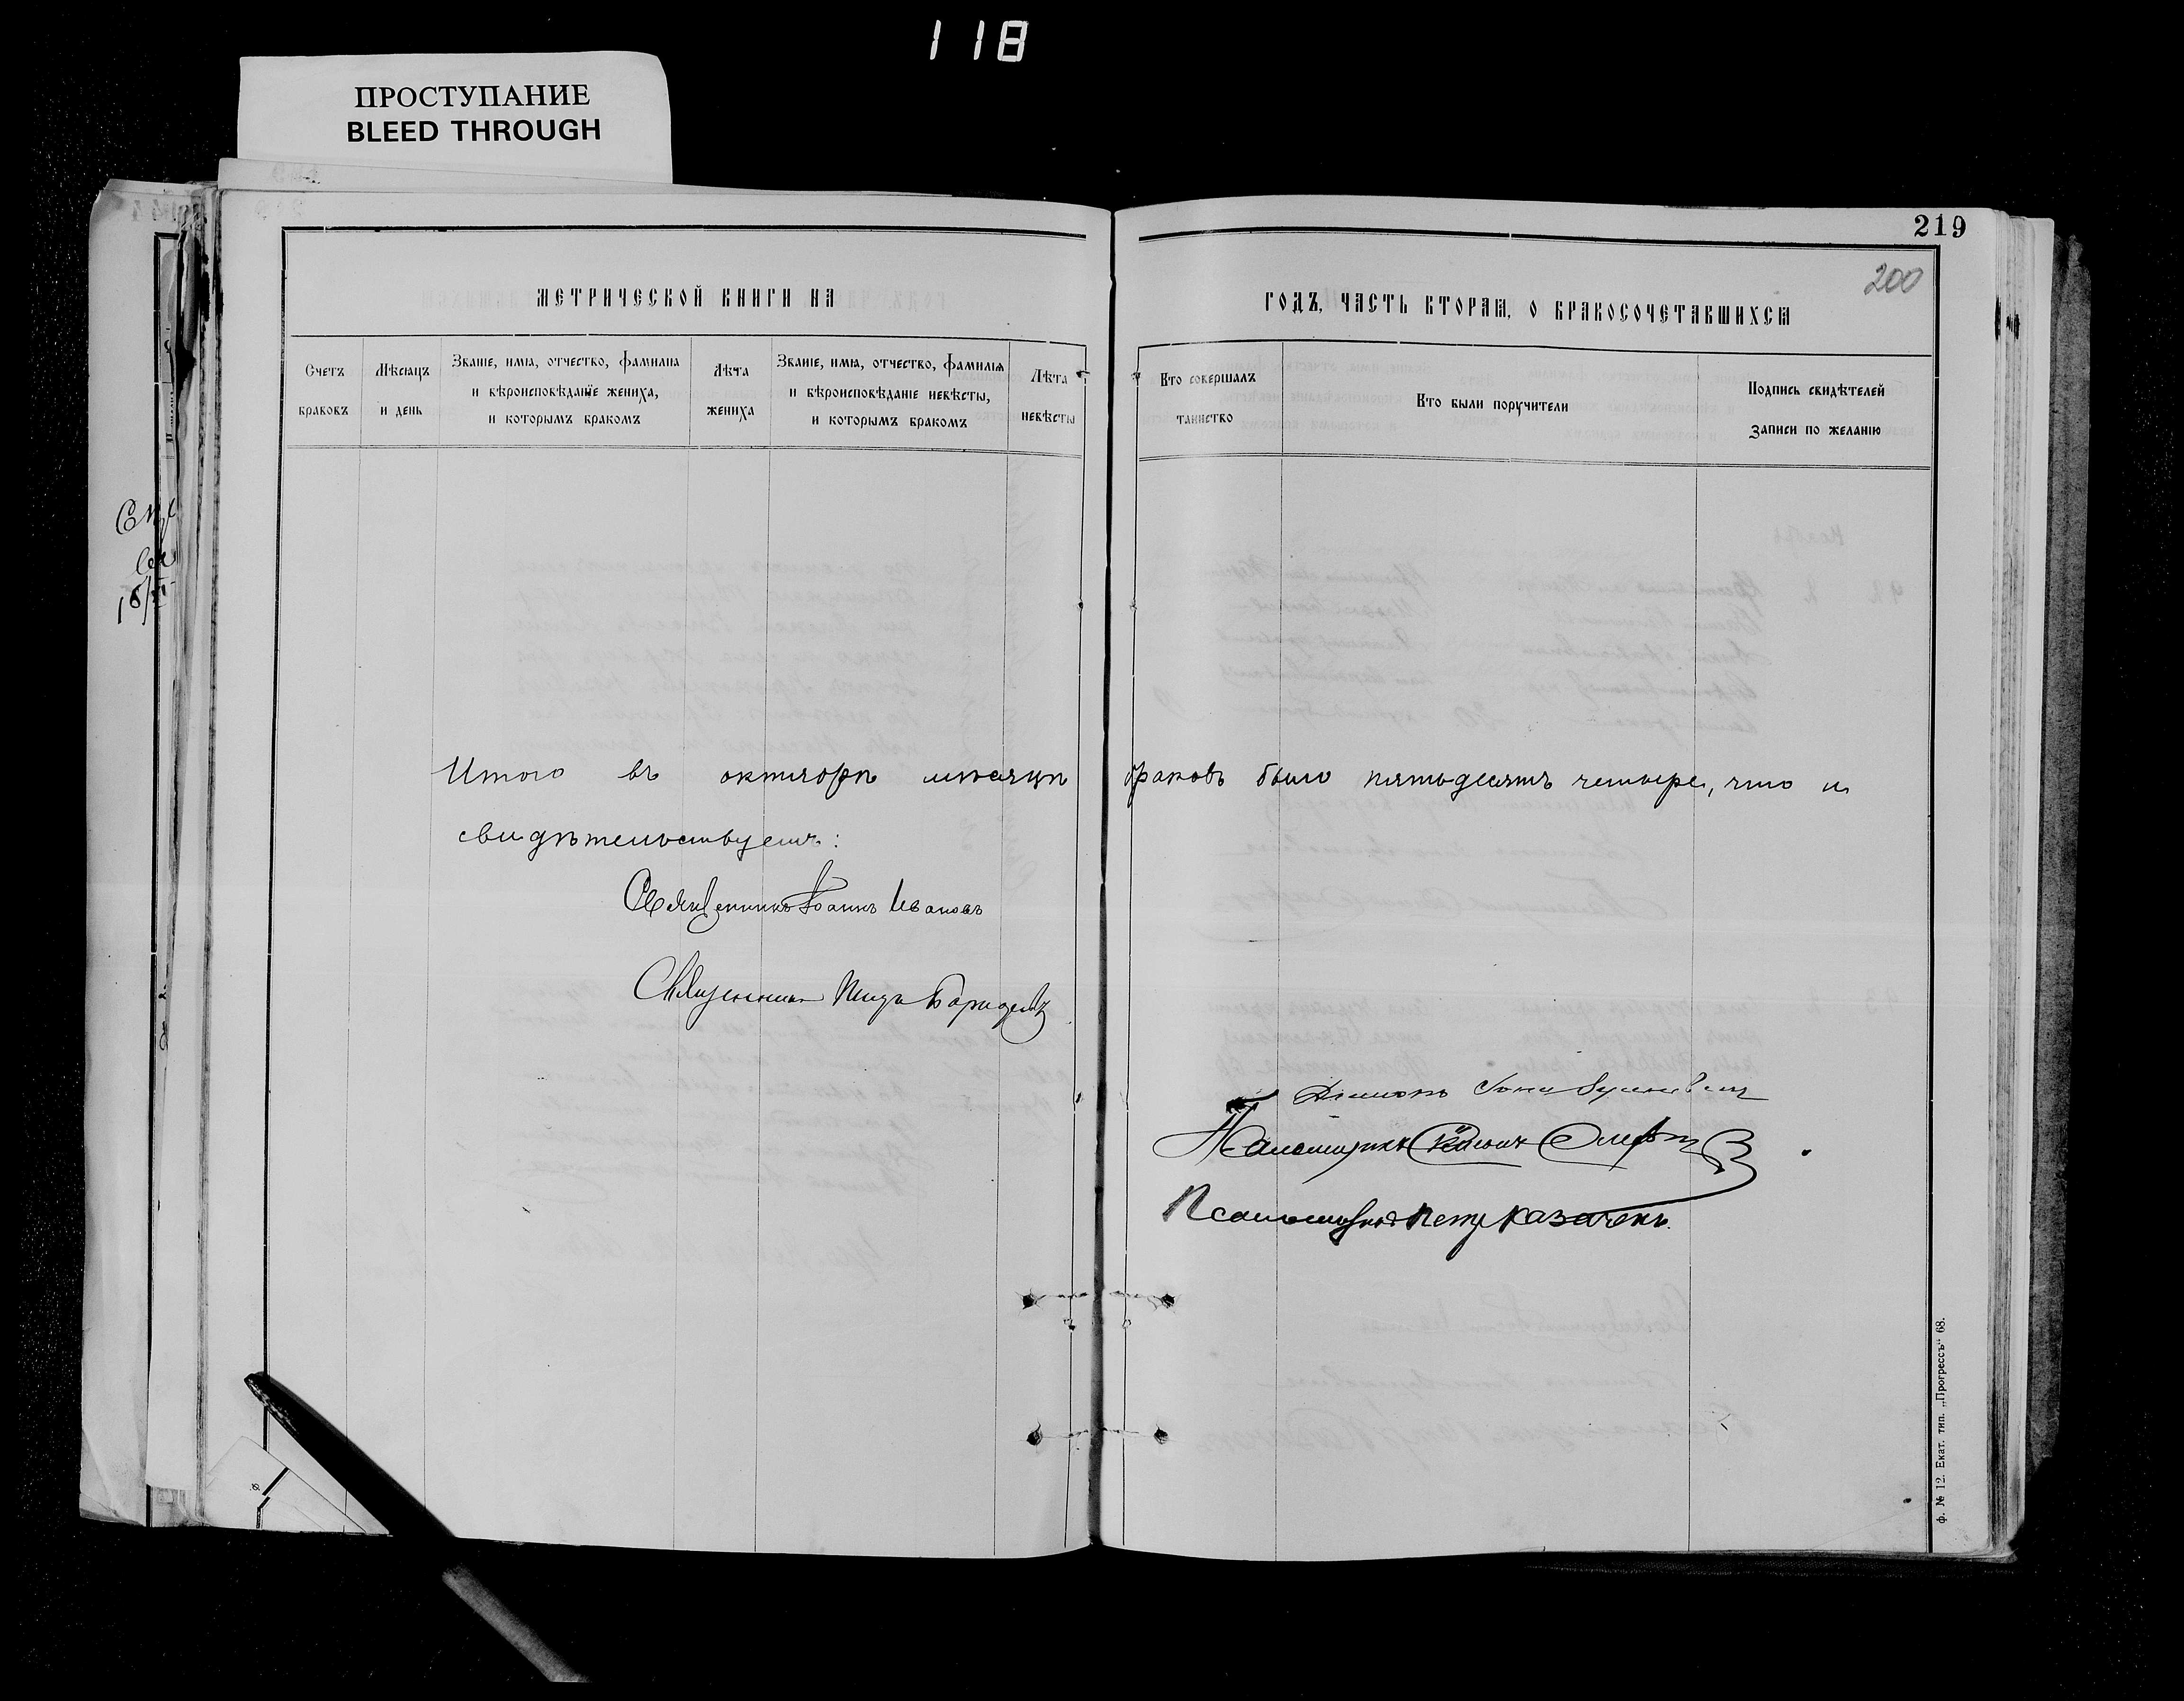 118
ПРОСТУПАНИЕ
BLEED THROUGH
219
200
МЕТРИЧЕСКОЙ КНИГИ НА ГОДЪ, ЧАСТЬ ВТОРАЯ, О БРАКОСОЧЕТАВШИХСЯ
Счетъ браковъ
Мѣсяцъ и день
Званіе, имя, отчество, фамилія и вѣроисповѣданіе жениха, и которымъ бракомъ
Лѣта жениха
Званіе, имя, отчество, фамилія и вѣроисповѣданіе невѣсты, и которымъ бракомъ
Лѣта невѣсты
Кто совершалъ таинство
Кто были поручители
Подпись свидѣтелей записи по желанію
Итого въ октябрѣ мѣсяцѣ браковъ было пятьдесятъ четыре, что и
свидѣтельствуемъ:
Священникъ Іоаннъ Ивановъ
Священникъ
Діаконъ
Псаломщикъ
Псаломщикъ Петръ Казачекъ.
ф. № 12. Екат. тип. „Прогрессъ“ 68.